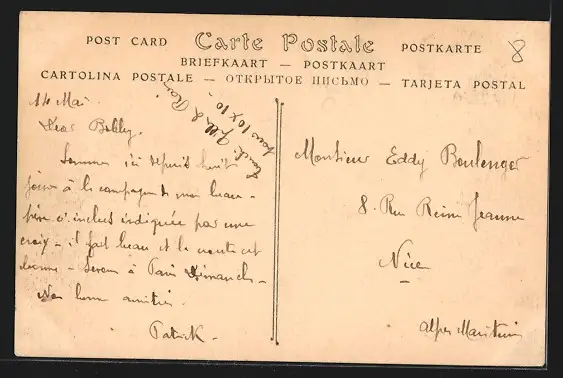 POST CARD Carte Postale POSTKARTE
8
BRIEFKAART — POSTKAART
CARTOLINA POSTALE — ОТКРЫТОЕ ПИСЬМО — TARJETA POSTAL
14 Mai
Dear Bobby.
Sommes ici depuis huit
jours à la campagne de mon beau-
père ci inclus indiquée par une
croix - il fait beau et la route est
bonne - Serons à Paris Dimanche -
amitiés.
Patrick -
10 x 10.
Monsieur Eddy Boulenger
8. Rue Reine Jeanne
Nice
Alpes Maritimes